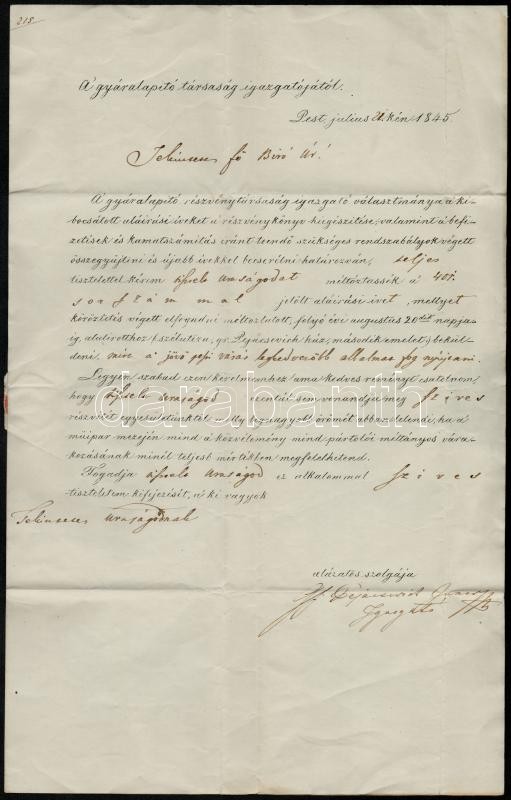 218
A' gyáralapító társaság igazgatójától.
Pest, július 21.kén 1845.
Tekintetes fő Biró Úr!
A' gyáralapító részvénytársaság igazgató választmánya a' ki-
bocsátott aláírási íveket a' részvénykönyv kiegészítése, valamint a' befi-
zetések és kamatszámítás iránt teendő szükséges rendszabályok végett
összegyűjteni és újabb ívekkel becserélni határozván, teljes
tisztelettel kérem uraságodat méltóztassék a' 401.
sor számmal jelölt aláírási ívet, mellyet
köröztetés végett elfogadni méltóztatott, folyó évi augustus 20dik napja-
ig, alulírotthoz gr. Pejácsevich ház, második emelet) bekül-
deni, mire a' jövő pesti vásár legkedvezőbb alkalmat fog nyújtani.
Legyen szabad ezen kérelmemhez ama kedves reményt csatolnom
hogy uraságod ezentúl sem vonandja meg szives
részvétét egyesületünktől, melly legnagyobb örömét abban lelendi, ha a'
műipar mezején mind a' közvélemény mind pártolói méltányos vára-
kozásának minél teljesb mértékben megfelelhetend.
Fogadja uraságod ez alkalommal szives
tiszteletem kifejezését, a' ki vagyok
Tekintetes uraságodnak
alázatos szolgája
Gf. Pejácsevich
Igazgató
darabanth